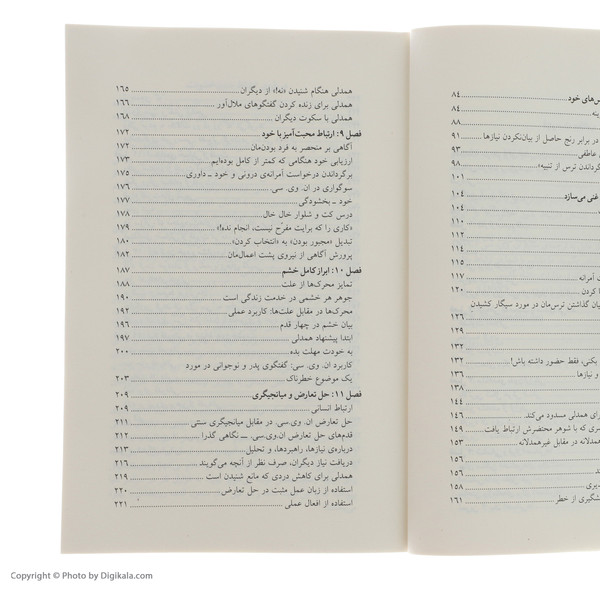 س‌های خود ۸۴
ینه ۸۴
۸۸
در برابر رنج حاصل از بیان‌نکردن نیازها ۹۱
عاطفی ۹۳
گرداندن ترس از تنبیه» ۹۸
غنی می‌سازد ۱۰۴
۱۰۴
۱۱۰
۱۱۲
۱۱۴
۱۱۵
ت آمرانه ۱۱۷
ا کردن ۱۲۰
یان گذاشتن ترس‌مان در مورد سیگار کشیدن
۱۲۶
۱۲۹
۱۳۲
بکنی، فقط حضور داشته باش! ۱۳۲
و نیازها ۱۳۶
۱۳۸
۱۴۴
رای همدلی مسدود می‌کند ۱۴۶
سری که با شوهر محتضرش ارتباط یافت ۱۴۹
همدلانه در مقابل غیرهمدلانه ۱۵۳
۱۵۶
۱۵۶
ذیری ۱۵۸
شگیری از خطر ۱۶۱
همدلی هنگام شنیدن «نه!» از دیگران ۱۶۵
همدلی برای زنده کردن گفتگوهای ملال‌آور ۱۶۶
همدلی با سکوت دیگران ۱۶۸
فصل ۹: ارتباط محبت‌آمیز با خود ۱۷۲
آگاهی بر منحصر به فرد بودن‌مان ۱۷۲
ارزیابی خود هنگامی که کمتر از کامل بوده‌ایم ۱۷۳
برگرداندن درخواست آمرانه‌ی درونی و خود ـ داوری ۱۷۵
سوگواری در ان. وی. سی. ۱۷۶
خود ـ بخشودگی ۱۷۷
درس کت و شلوار خال خال ۱۷۸
«کاری را که برایت مفرّح نیست، انجام نده!» ۱۷۹
تبدیل «مجبور بودن» به «انتخاب کردن» ۱۸۰
پرورش آگاهی از نیروی پشت اعمال‌مان ۱۸۲
فصل ۱۰: ابراز کامل خشم ۱۸۷
تمایز محرک‌ها از علت ۱۸۷
جوهر هر خشمی در خدمت زندگی است ۱۹۰
محرک‌ها در مقابل علت‌ها: کاربرد عملی ۱۹۲
بیان خشم در چهار قدم ۱۹۶
ابتدا پیشنهاد همدلی ۱۹۷
به خودت مهلت بده ۲۰۰
کاربرد ان. وی. سی: گفتگوی پدر و نوجوانی در مورد
یک موضوع خطرناک ۲۰۳
فصل ۱۱: حل تعارض و میانجیگری ۲۰۹
ارتباط انسانی ۲۰۹
حل تعارض ان. وی.سی. در مقابل میانجیگری سنتی ۲۱۱
قدم‌های حل تعارض ان.وی.سی. ـ نگاهی گذرا ۲۱۲
درباره‌ی نیازها، راهبردها، و تحلیل ۲۱۳
دریافت نیاز دیگران، صرف نظر از آنچه می‌گویند ۲۱۶
همدلی برای کاهش دردی که مانع شنیدن است ۲۱۹
استفاده از زبان عمل مثبت در حل تعارض ۲۲۰
استفاده از افعال عملی ۲۲۱
Copyright © Photo by Digikala.com